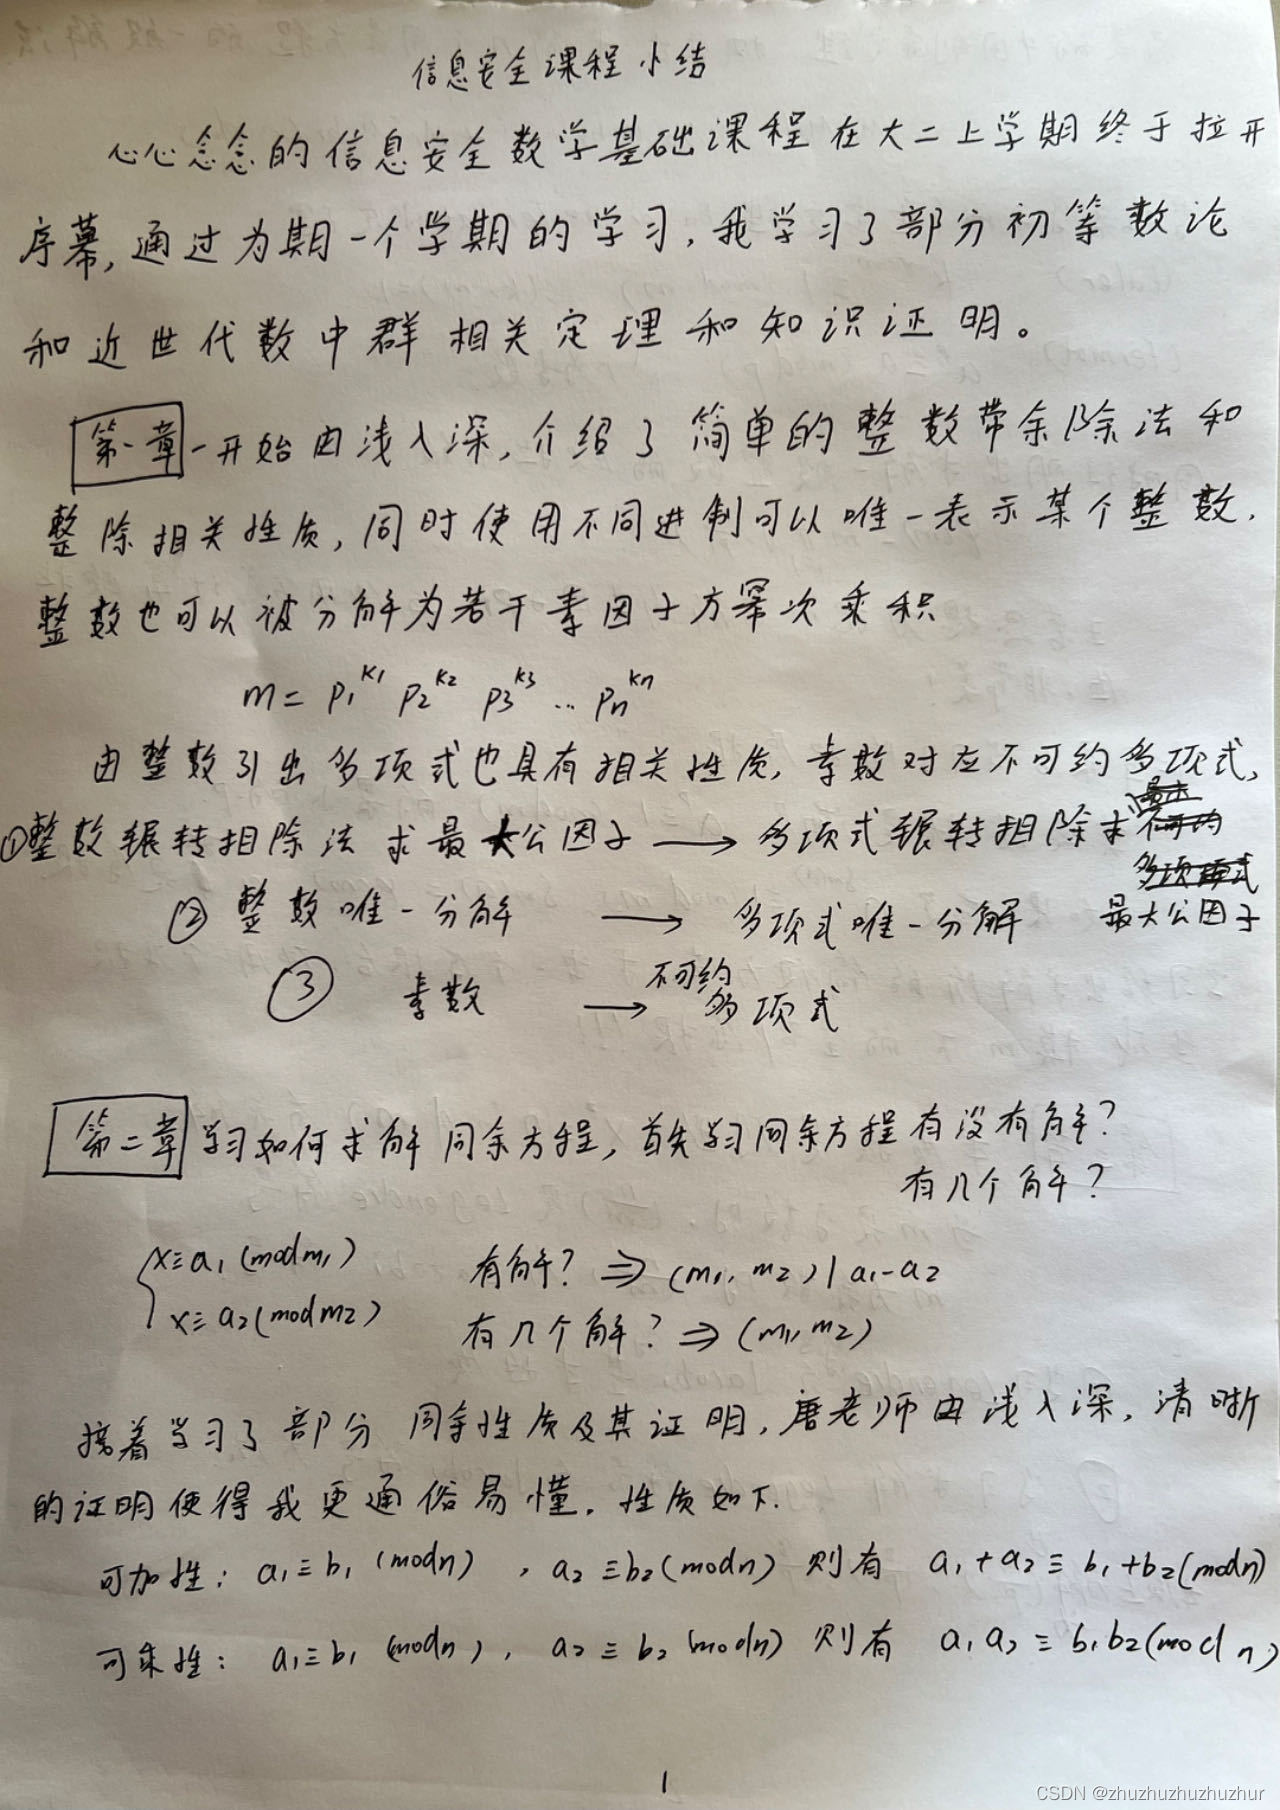 信息安全课程小结
心心念念的信息安全数学基础课程在大二上学期终于拉开
序幕,通过为期一个学期的学习,我学习了部分初等数论
和近世代数中群相关定理和知识证明。
第一章一开始由浅入深,介绍了简单的整数带余除法和
整除相关性质,同时使用不同进制可以唯一表示某个整数.
整数也可以被分解为若干素因子方幂次乘积
m = p₁^k₁ p₂^k₂ p₃^k₃ … pₙ^kₙ
由整数引出多项式也具有相关性质,素数对应不可约多项式,
①整数辗转相除法求最大公因子 → 多项式辗转相除求
最大公因子
② 整数唯一分解 → 多项式唯一分解
③ 素数 → 不可约多项式
第二章 学习如何求解同余方程,首先学习同余方程有没有解?
有几个解?
x≡a₁(mod m₁) 有解? ⇒ (m₁, m₂) | a₁-a₂
x≡a₂(mod m₂) 有几个解? ⇒ (m₁,m₂)
接着学习了部分同余性质及其证明,唐老师由浅入深,清晰
的证明使得我更通俗易懂.性质如下.
可加性: a₁≡b₁ (mod n) , a₂≡b₂(mod n) 则有 a₁+a₂≡b₁+b₂(mod n)
可乘性: a₁≡b₁ (mod n), a₂≡b₂(mod n) 则有 a₁a₂≡b₁b₂(mod n)
1
CSDN @zhuzhuzhuzhuzhur